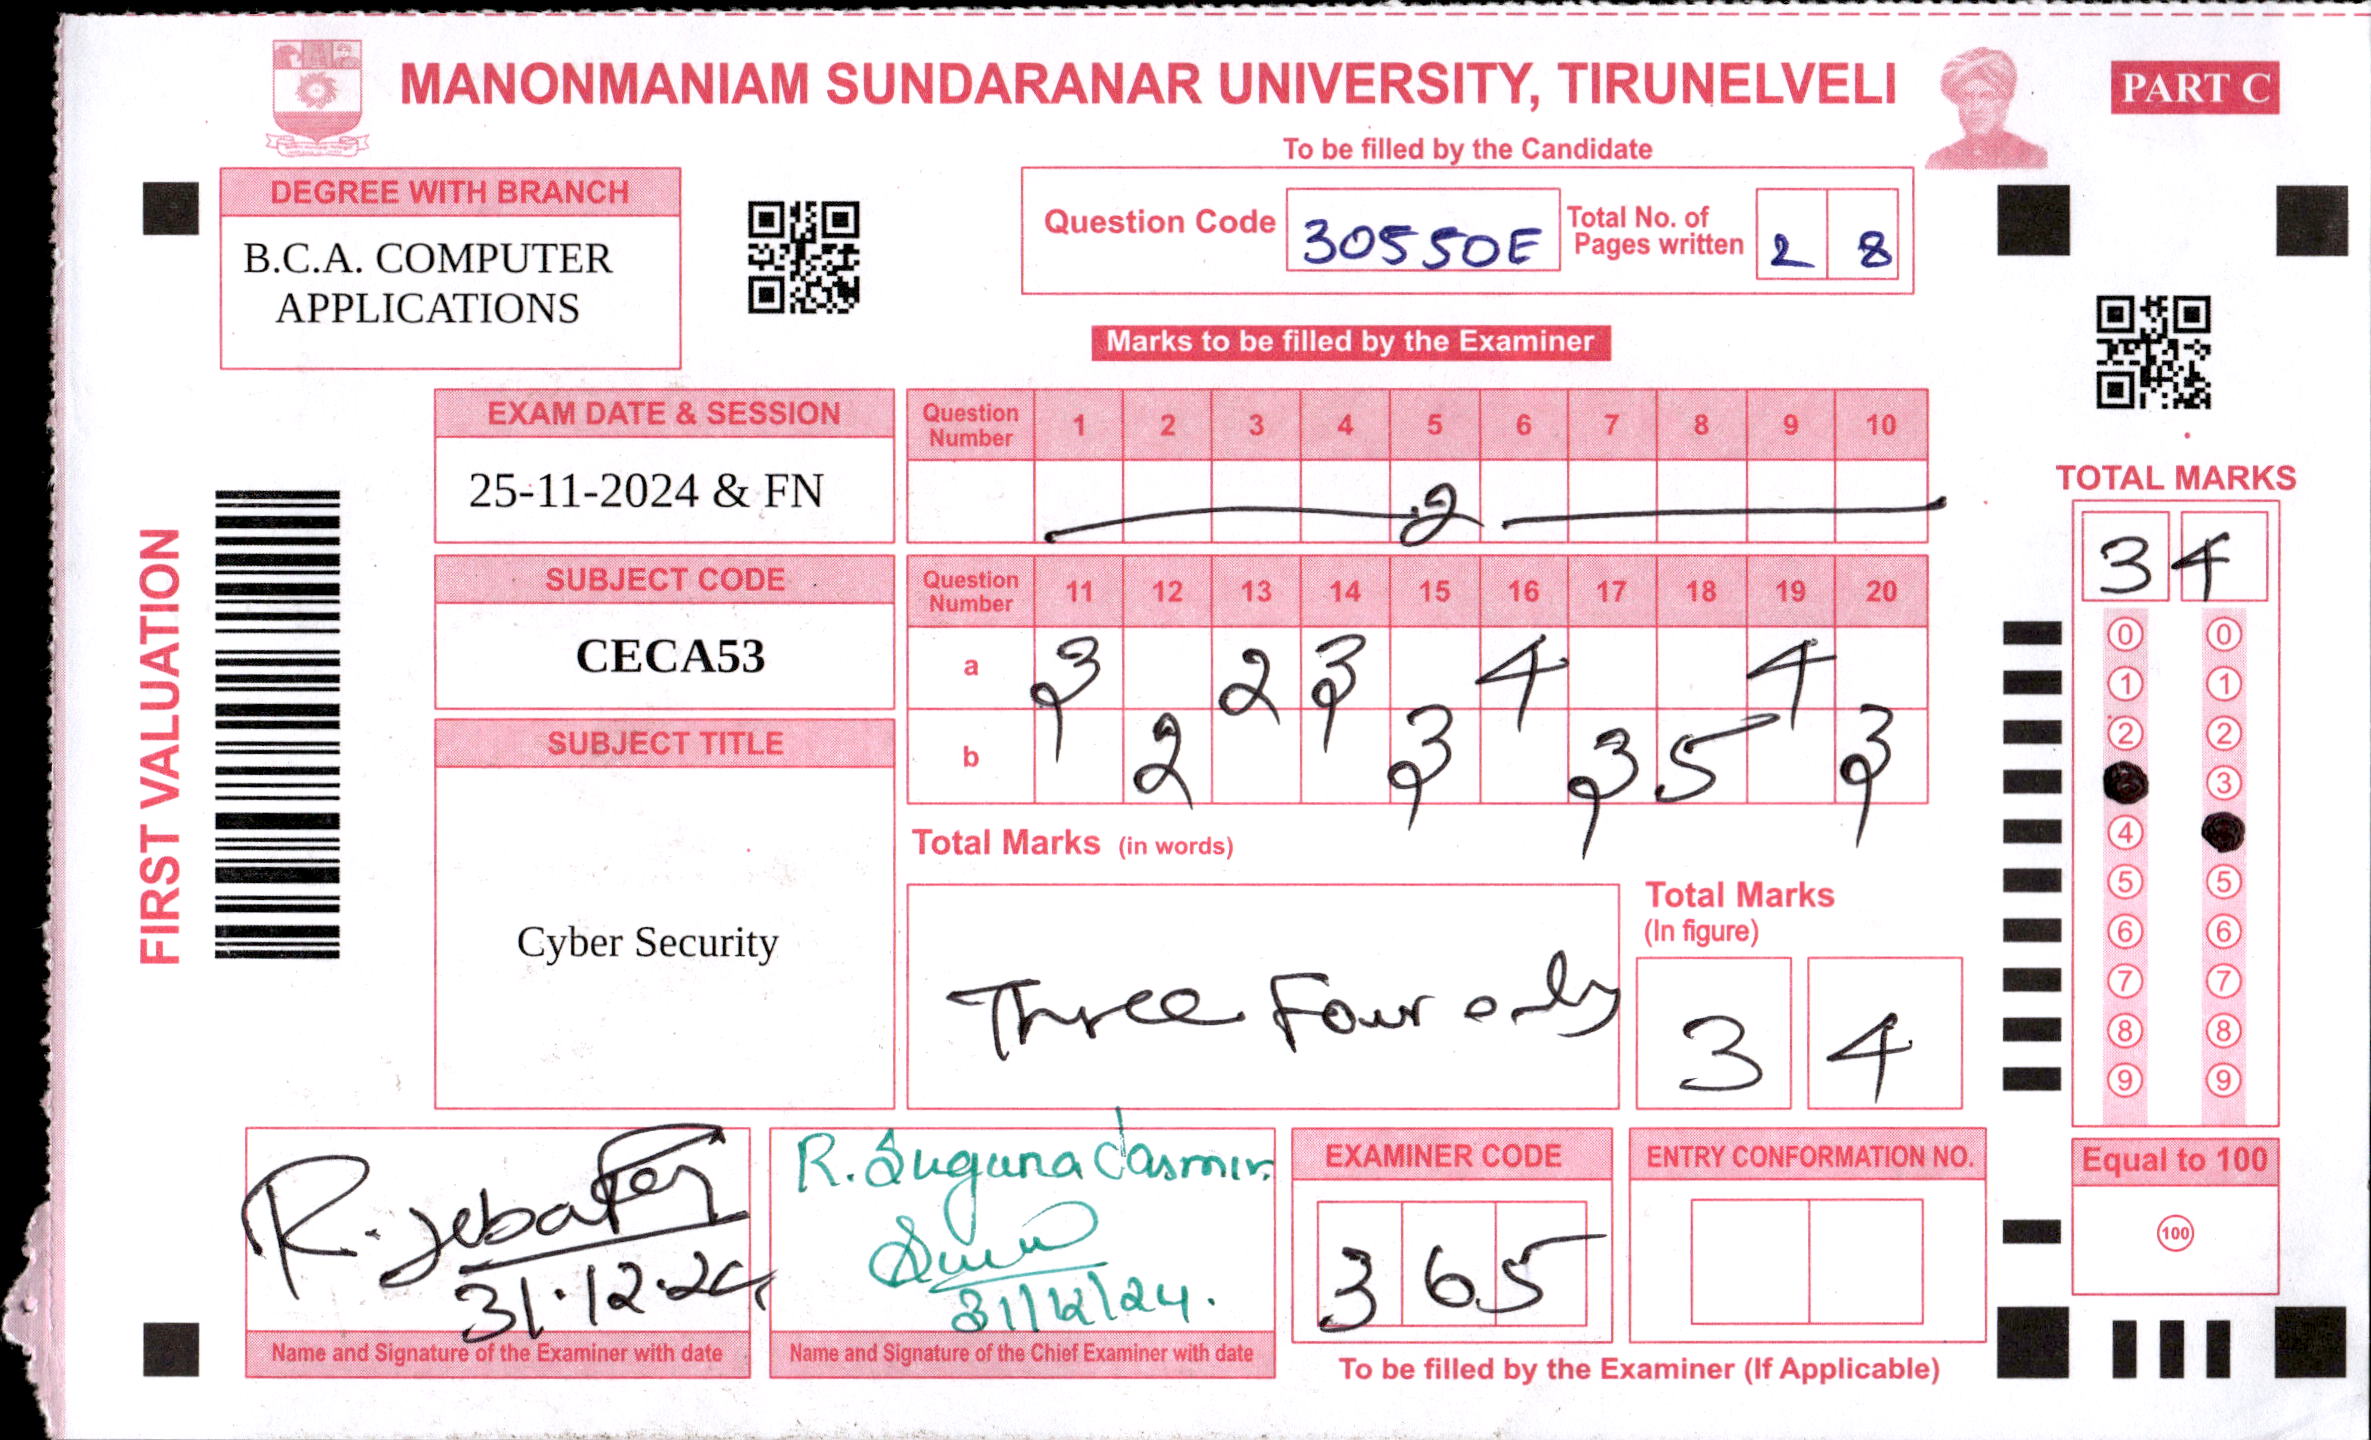 MANONMANIAM SUNDARANAR UNIVERSITY, TIRUNELVELI
PART C
To be filled by the Candidate
DEGREE WITH BRANCH
B.C.A. COMPUTER
APPLICATIONS
Question Code 30550E Total No. of Pages written 2 8
Marks to be filled by the Examiner
FIRST VALUATION
EXAM DATE & SESSION
25-11-2024 & FN
SUBJECT CODE
CECA53
SUBJECT TITLE
Cyber Security
Question Number 1 2 3 4 5 6 7 8 9 10
2
Question Number 11 12 13 14 15 16 17 18 19 20
a 3 2 3 4 4
b 2 3 3 5 3
Total Marks (in words)
Three Four only
Total Marks
(In figure)
3 4
TOTAL MARKS
3 4
0 0
1 1
2 2
3
4
5 5
6 6
7 7
8 8
9 9
Equal to 100
100
R. Jeba
31.12.24
Name and Signature of the Examiner with date
R. Suguna Jasmin
31/12/24.
Name and Signature of the Chief Examiner with date
EXAMINER CODE
3 6 5
ENTRY CONFORMATION NO.
To be filled by the Examiner (If Applicable)